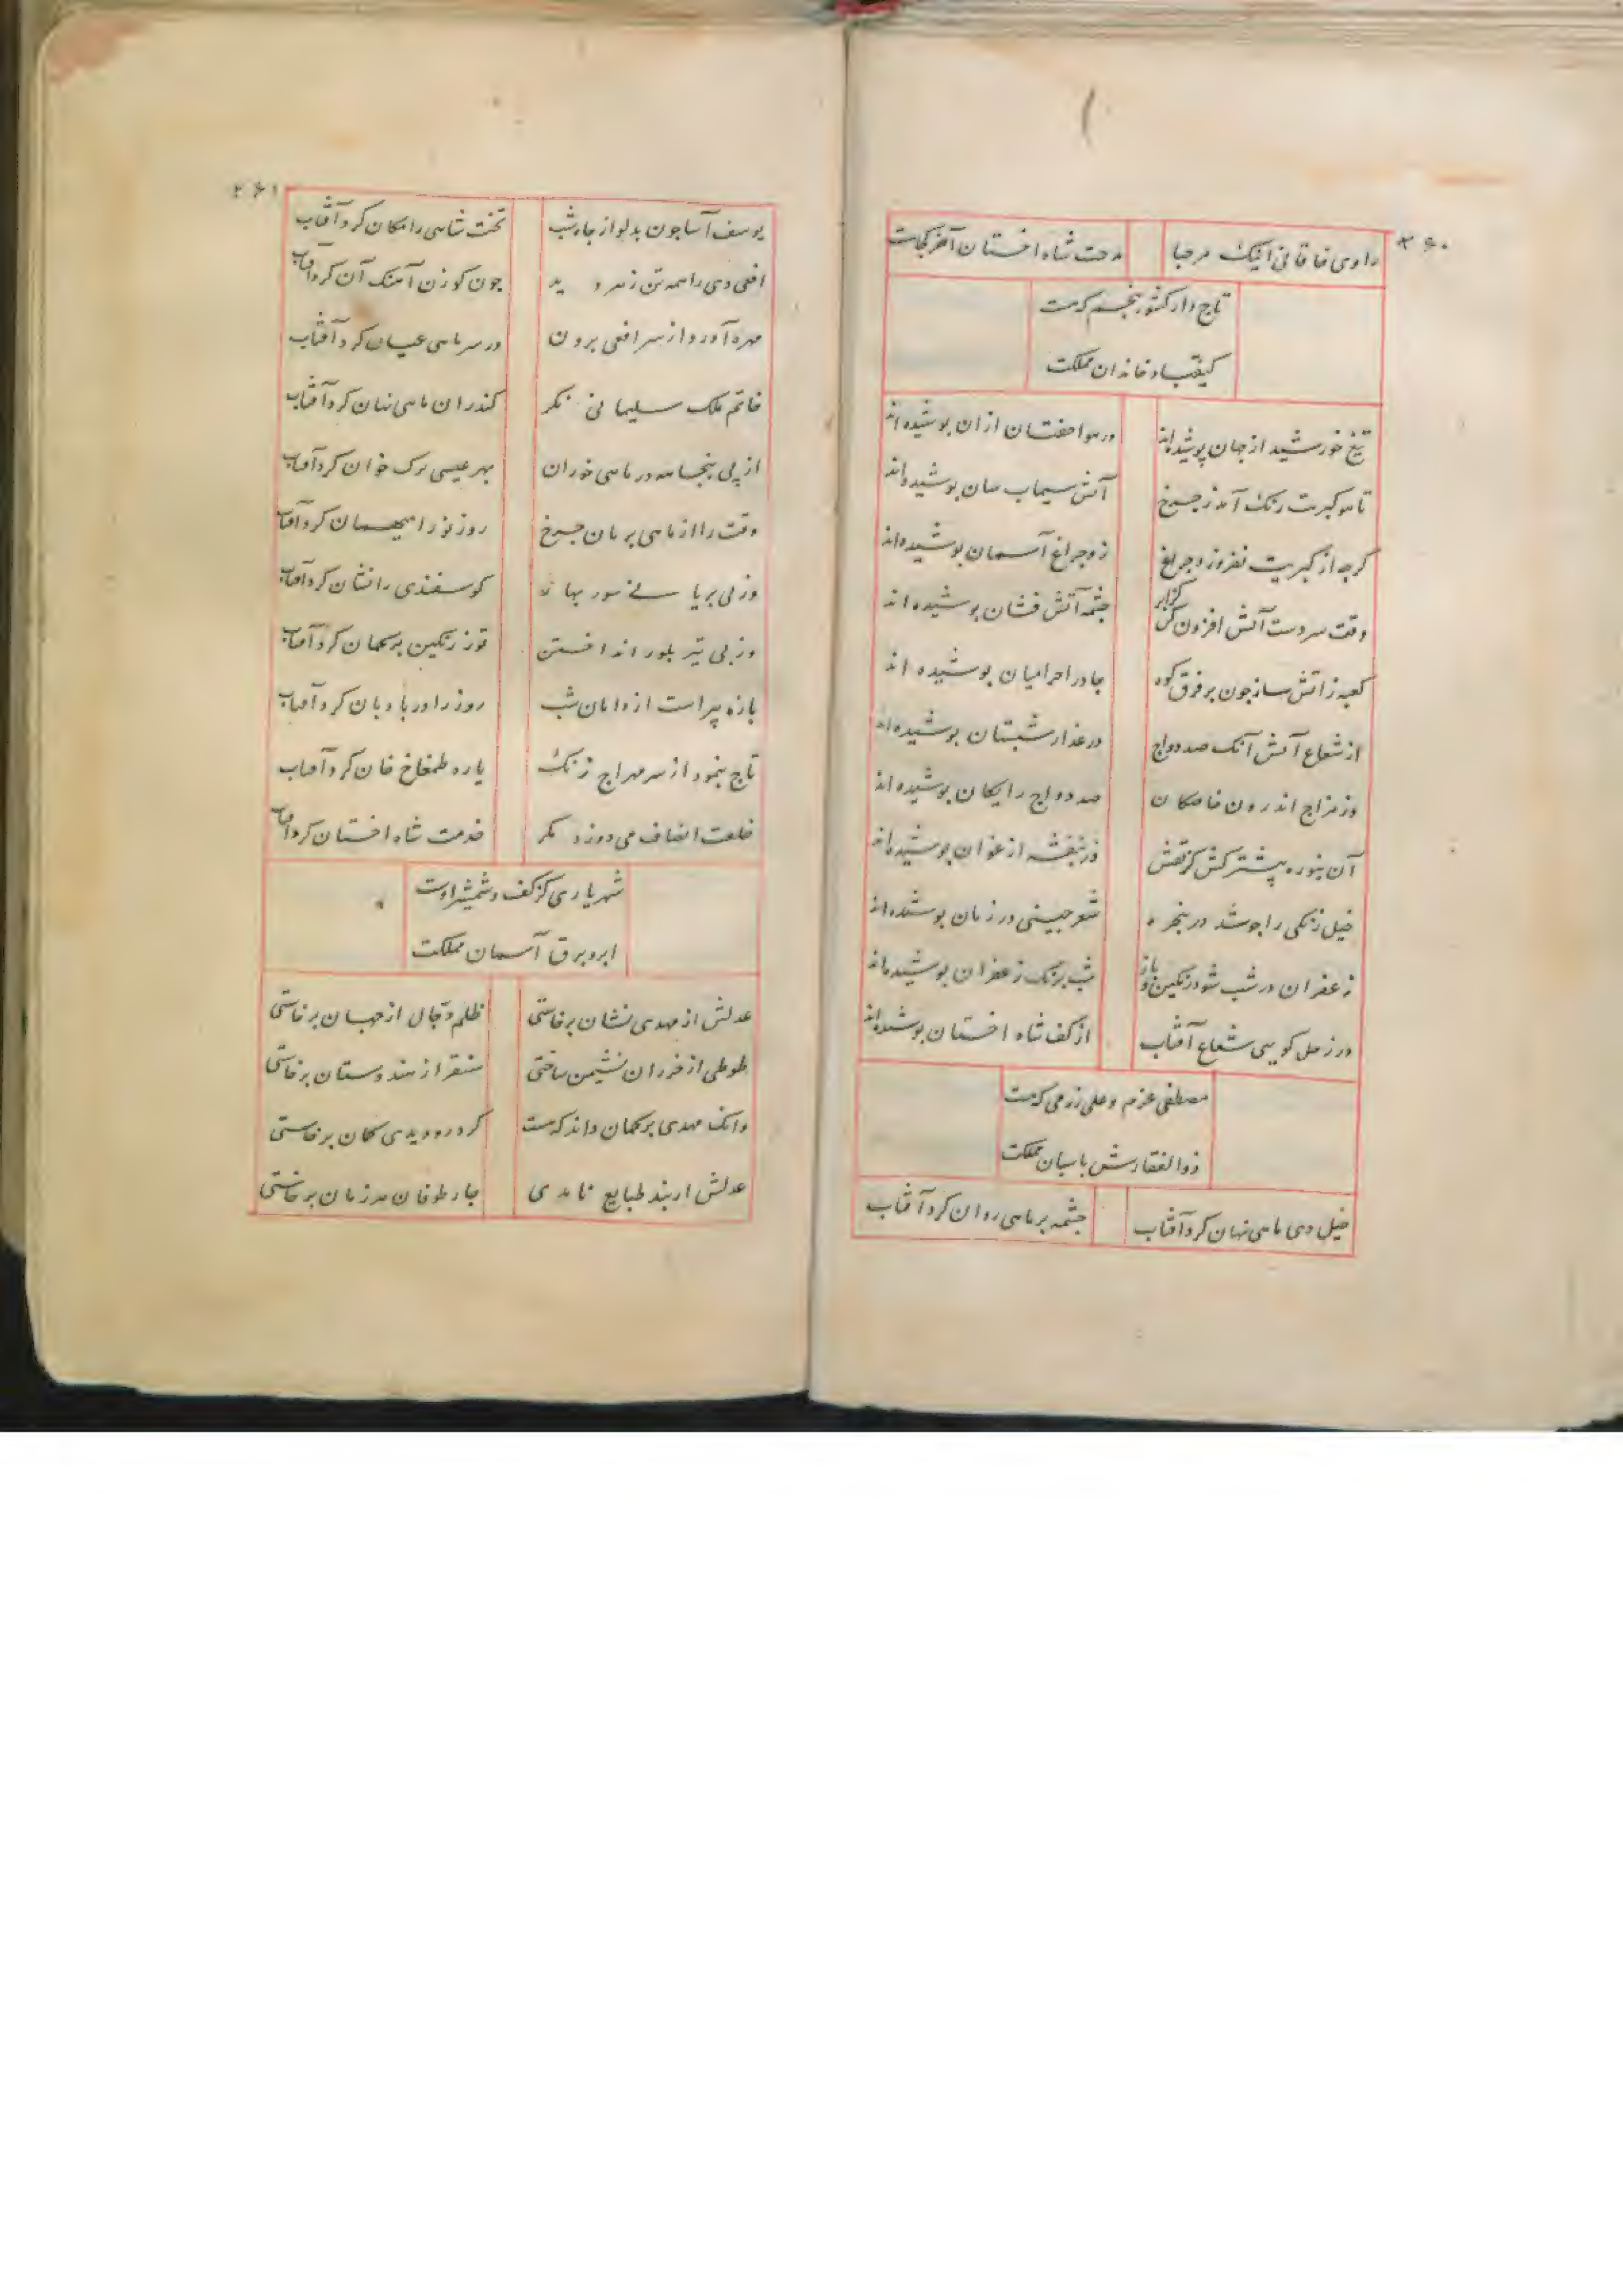 ۲۶۰
راوی خاقانی اینک مرحبا مدحت شاه اخستان آخر کجاست
تاج دار کشور پنجم که هست
کیقباد خاندان مملکت
تیغ خورشید از جهان پوشیده‌اند در هوا خفتان ازان پوشیده‌اند
تا هوا کبریت رنک آمد ز چرخ آتش سیماب سان پوشیده‌اند
کرچه از کبریت نفروزد چراغ زو چراغ آسمان پوشیده‌اند
وقت سردست آتش افزون کن چشمه آتش فشان پوشیده اند
کعبه ز آتش ساز چون بر فرق کوه چادر احرامیان پوشیده اند
از شعاع آتش آنک صد دواج در عذار شبستان پوشیده‌اند
وز مزاج اندرون خاصکان صد دواج رایکان پوشیده‌اند
آن تنوره پیشتر کش کز تفش در بنفشه ارغوان پوشیده‌اند
خیل زنکی را چو شد در پنجره شعر چینی در زمان پوشیده‌اند
زعفران در شب شود رنکین شب برنک زعفران پوشیده‌اند
در زحل کویی شعاع آفتاب از کف شاه اخستان پوشیده‌اند
مصطفی عزم و علی رزمی که هست
ذوالفقارش پاسبان مملکت
خیل دی ماهی نهان کرد آفتاب چشمه بر ماهی روان کرد آفتاب
۲۶۱
یوسف آسا چون بدلو از چاه شب تخت شاهی را مکان کرد آفتاب
افعی دی را همه تن زمرد دید چون کوزن آهنک آن کرد آفتاب
مهره آورد از سر افعی برون در سر ماهی عیان کرد آفتاب
خاتم ملک سلیمانی نکر کندران ماهی نهان کرد آفتاب
از پی پنجاهه در ماهی خوران بهر عیسی برک خوان کرد آفتاب
وقت را از ماهی بریان چرخ روز نو را میهمان کرد آفتاب
وز پی بریانی سور بهار کوسفندی را نشان کرد آفتاب
وز پی تیر بلور انداختن توز رنکین بر کمان کرد آفتاب
پاره پیراست از دامان شب روز را در بادبان کرد آفتاب
تاج بنمود از سر مهراج زنک یاره طمغاج خان کرد آفتاب
خلعت انصاف می دوزد مکر خدمت شاه اخستان کرد آفتاب
شهریاری کز کف و شمشیر اوست
ابر و برق آسمان مملکت
عدلش از مهدی نشان برخاستی ظلم دجال از جهان برخاستی
طوطی از خزران نشیمن ساختی سنقر از هندوستان برخاستی
وانک مهدی بر کمان داند که هست کر درو دیدی کمان برخاستی
عدلش ار بند طبایع نامدی چار طوفان هر زمان برخاستی